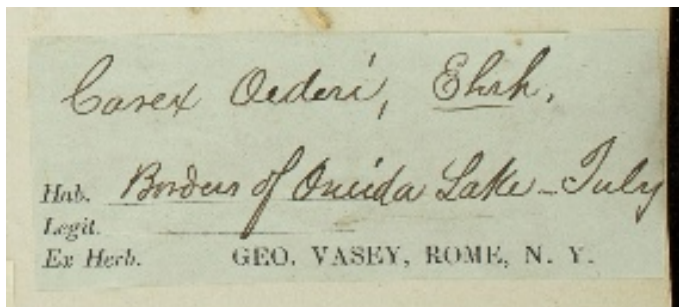 Carex Oederi, Ehrh.
Hab. Borders of Oneida Lake – July
Legit.
Ex Herb. GEO. VASEY, ROME, N. Y.